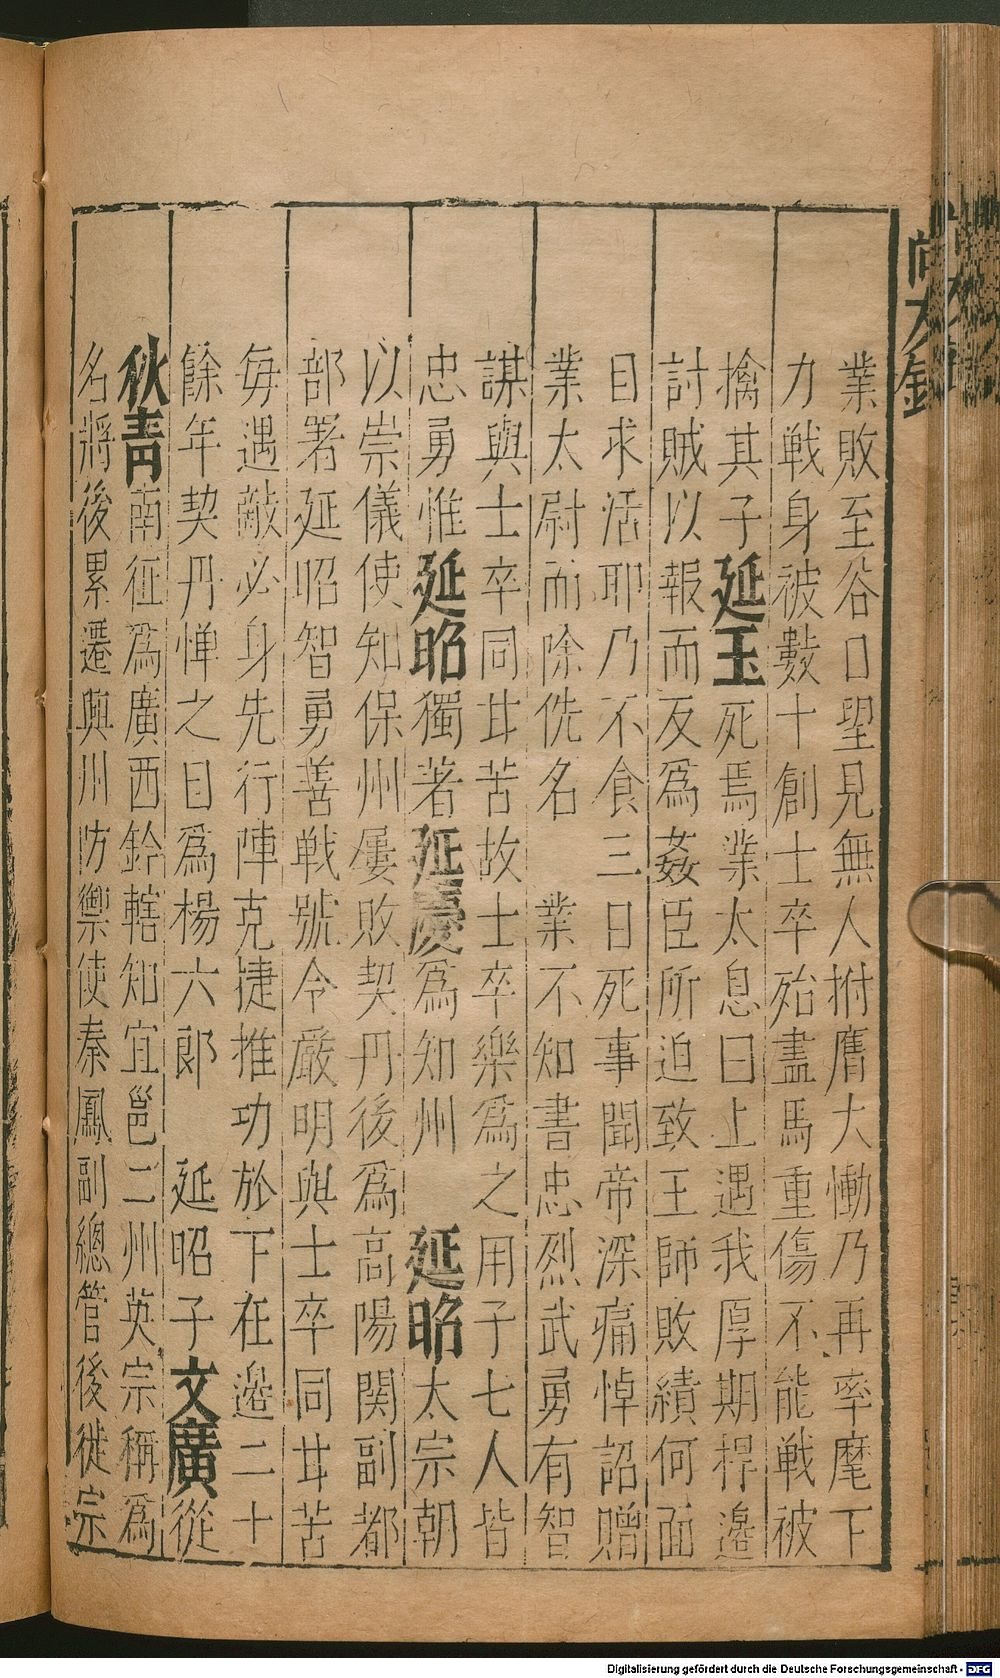 業敗至谷口望見無人拊膺大慟乃再率麾下
力戰身被數十創士卒殆盡馬重傷不能戰被
擒其子延玉死焉業太息曰上遇我厚期捍邉
討賊以報而反爲姦臣所迫致王師敗績何面
目求活耶乃不食三日死事聞帝深痛悼詔贈
業太尉而除侁名　業不知書忠烈武勇有智
謀與士卒同甘苦故士卒樂爲之用子七人皆
忠勇惟延昭獨著延慶爲知州　延昭太宗朝
以崇儀使知保州屢敗契丹後爲高陽関副都
部署延昭智勇善戦號令嚴明與士卒同甘苦
毎遇敵必身先行陣克捷推功於下在邉二十
餘年契丹憚之目爲楊六郎　延昭子文廣從
狄青南征爲廣西鈐轄知宜邕二州英宗稱爲
名將後累遷興州防禦使秦鳳副總管後徙宗
Digitalisierung gefördert durch die Deutsche Forschungsgemeinschaft - DFG